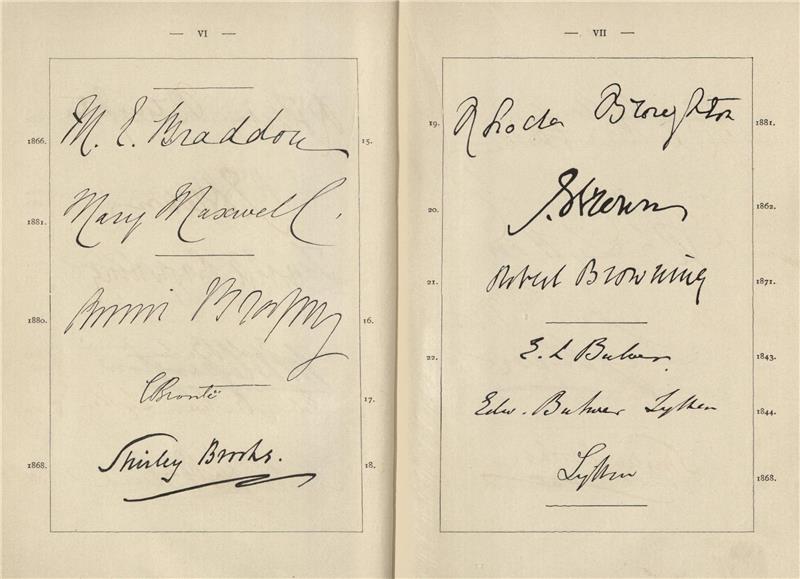 — VI —
1866. M. E. Braddon 15.
1881. Mary Maxwell.
1880. Annie Brophy 16.
CBrontë 17.
1868. Shirley Brooks. 18.
— VII —
19. Rhoda Broughton 1881.
20. Brown 1862.
21. Robert Browning 1871.
22. E. L Bulwer 1843.
Edw. Bulwer Lytton 1844.
Lytton 1868.